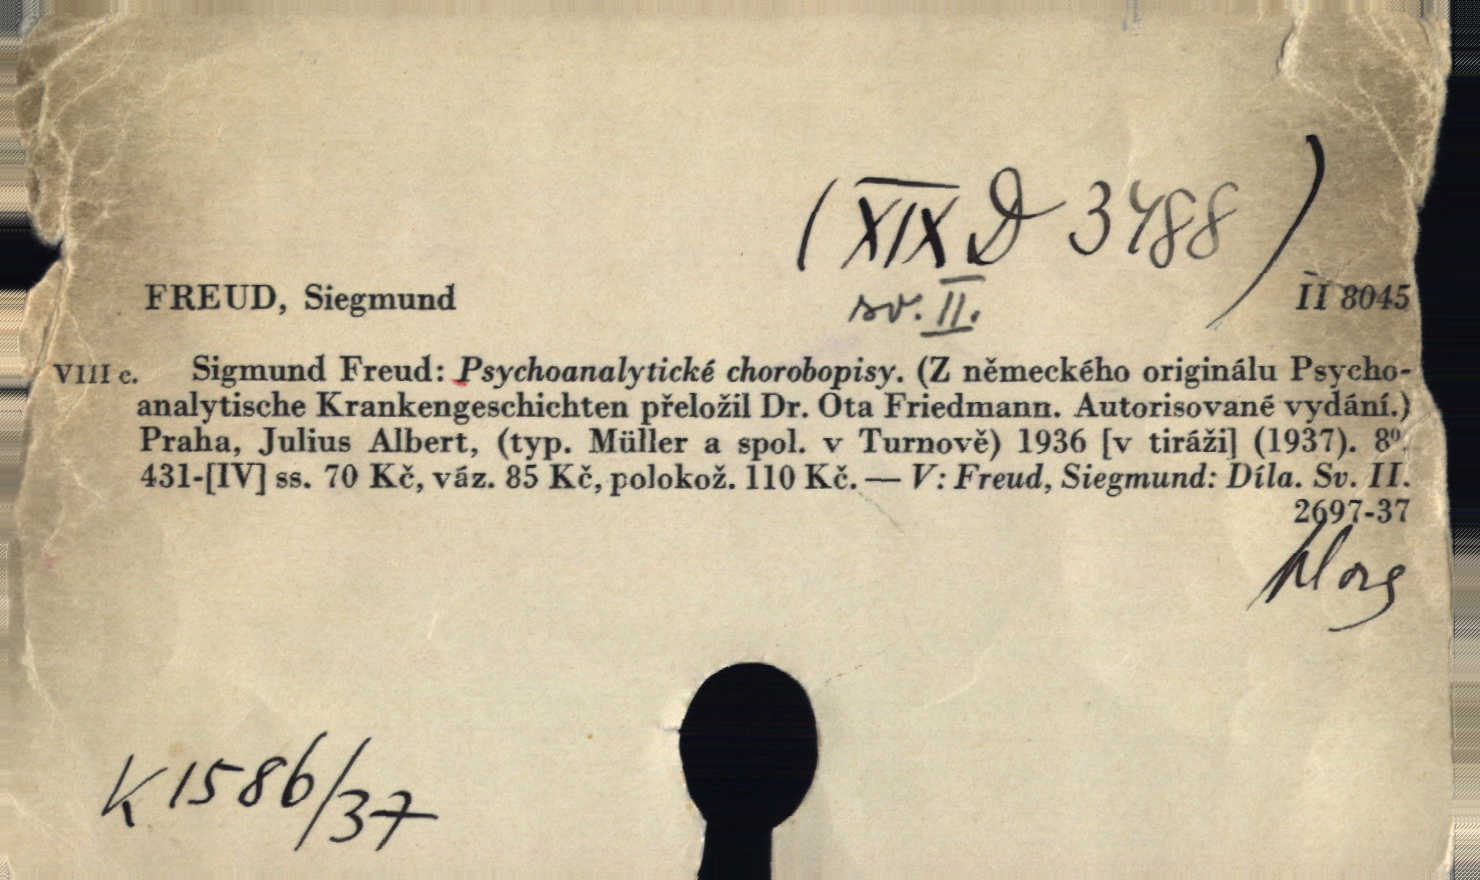 ( XIX D 3488 )
FREUD, Siegmund
sv. II.
II 8045
VIII c. Sigmund Freud: Psychoanalytické chorobopisy. (Z německého originálu Psycho-
analytische Krankengeschichten přeložil Dr. Ota Friedmann. Autorisované vydání.)
Praha, Julius Albert, (typ. Müller a spol. v Turnově) 1936 [v tiráži] (1937). 8º.
431-[IV] ss. 70 Kč, váz. 85 Kč, polokož. 110 Kč. — V: Freud, Siegmund: Díla. Sv. II.
2697-37
K 1586/37